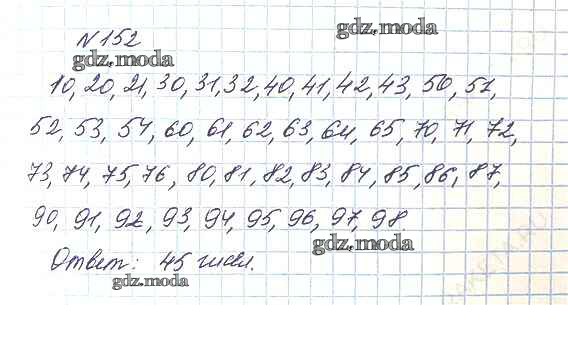 №152
gdz.moda
gdz.moda
10, 20, 21, 30, 31, 32, 40, 41, 42, 43, 50, 51,
52, 53, 54, 60, 61, 62, 63, 64, 65, 70, 71, 72,
73, 74, 75, 76, 80, 81, 82, 83, 84, 85, 86, 87,
90, 91, 92, 93, 94, 95, 96, 97, 98
gdz.moda
Ответ: 45 чисел.
gdz.moda